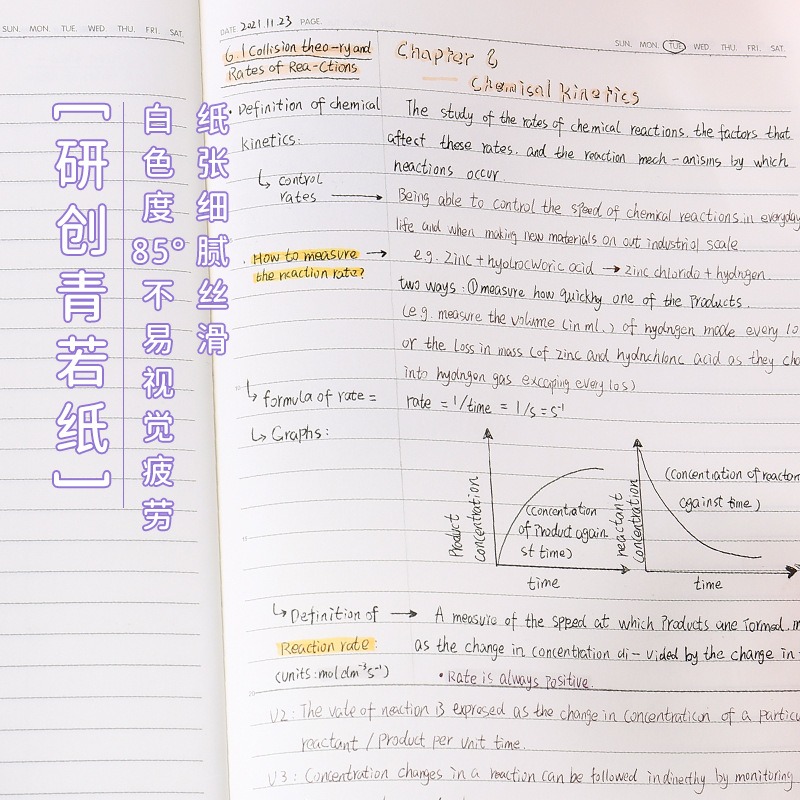 SUN. MON. TUE. WED. THU. FRI. SAT.
DATE 2021.11.23 PAGE.
SUN. MON. TUE. WED. THU. FRI. SAT.
【研创青若纸】
白色度85°不易视觉疲劳
纸张细腻丝滑
6.1 Collision theo-ry and
Rates of Rea-Ctions
Chapter 6
Chemisal Kinetics
• Definition of chemical
kinetics:
The study of the rotes of chemical reactions. the factors that
affect these rates. and the reaction mech-anisms by which
reactions occur.
↳ control
rates →
Being able to control the speed of chemical reactions.in everyday
life and when making new materials on out industrial scale.
. How to measure →
the reaction rate?
e.g. Zinc + hydrocworic acid → zinc chlorido + hydrogen.
two ways: ① measure how quickly one of the Products.
(e.g. measure the volume (in ml.) of hydrogen made every 10
or the Loss in mass (of zinc and hydrochloric acid as they cha
into hydrogen gas excaping every 10s)
↳ formula of rate =
rate = 1/time = 1/s = s⁻¹
↳ Graphs:
Product
concentration
(Concentration
of Product again-
st time)
time
reactant
concentration
(concentration of reactan
against time)
time
↳ Definition of →
Reaction rate:
(units: mol dm⁻³s⁻¹)
A measure of the speed at which Products are Formed. m
as the change in concentration di-vided by the change in
• Rate is always positive.
V2: The vate of reaction is expresed as the change in concentration of a particu
reactant / Product per unit time.
V3: Concentration changes in a reaction can be followed indirecthy by monitoring